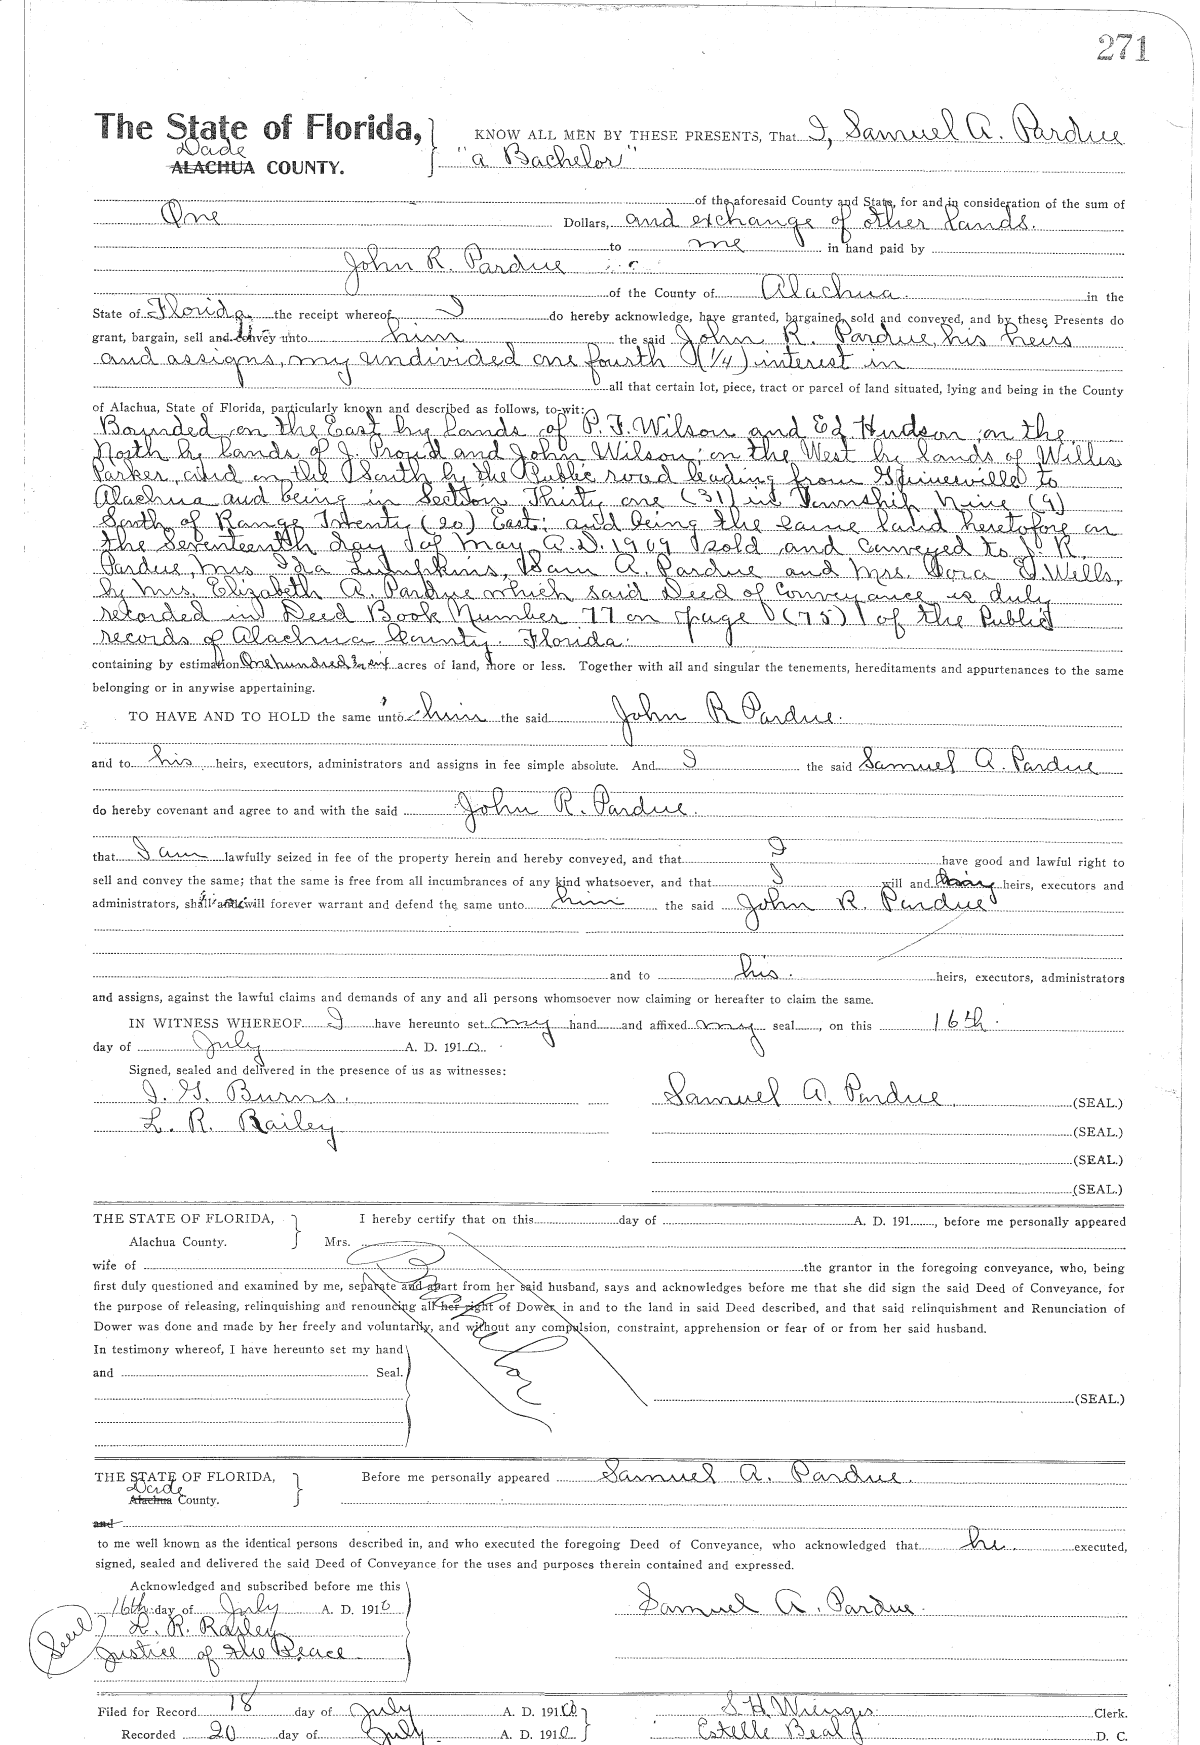 271
The State of Florida, KNOW ALL MEN BY THESE PRESENTS, That I, Samuel A. Pardue
Dade
ALACHUA COUNTY. "a Bachelor"
of the aforesaid County and State, for and in consideration of the sum of
One Dollars, and exchange of other lands.
to me in hand paid by
John R. Pardue
of the County of Alachua in the
State of Florida, the receipt whereof I do hereby acknowledge, have granted, bargained, sold and conveyed, and by these Presents do
grant, bargain, sell and convey unto him the said John R. Pardue, his heirs
and assigns, my undivided one fourth (1/4) interest in
all that certain lot, piece, tract or parcel of land situated, lying and being in the County
of Alachua, State of Florida, particularly known and described as follows, to-wit:
Bounded on the East by lands of P. F. Wilson and Ed Hudson, on the
North by lands of J. Proud and John Wilson; on the West by lands of Willis
Parker, and on the South by the Public road leading from to
Alachua and being in Section Thirty one (31) in Township Nine (9)
South of Range Twenty (20) East; and being the same land heretofore on
the Seventeenth day of May A.D. 1909 sold and conveyed to J. R.
Pardue, Mrs Ida Lumpkins, Sam A. Pardue and Mrs. Dora E. Wells,
by Mrs. Elizabeth A. Pardue which said Deed of Conveyance is duly
recorded in Deed Book Number 77 on page (75) of the Public
records of Alachua County, Florida.
containing by estimation One hundred acres of land, more or less. Together with all and singular the tenements, hereditaments and appurtenances to the same
belonging or in anywise appertaining.
TO HAVE AND TO HOLD the same unto him the said John R Pardue.
and to his heirs, executors, administrators and assigns in fee simple absolute. And I the said Samuel A. Pardue
do hereby covenant and agree to and with the said John R. Pardue.
that I am lawfully seized in fee of the property herein and hereby conveyed, and that I have good and lawful right to
sell and convey the same; that the same is free from all incumbrances of any kind whatsoever, and that I will and my heirs, executors and
administrators, shall and will forever warrant and defend the same unto him the said John R. Pardue
and to his. heirs, executors, administrators
and assigns, against the lawful claims and demands of any and all persons whomsoever now claiming or hereafter to claim the same.
IN WITNESS WHEREOF I have hereunto set my hand and affixed my seal, on this 16th.
day of July A. D. 1910.
Signed, sealed and delivered in the presence of us as witnesses:
J. G. Burns. Samuel A. Pardue. (SEAL.)
L. R. Railey (SEAL.)
(SEAL.)
(SEAL.)
THE STATE OF FLORIDA, I hereby certify that on this day of A. D. 191, before me personally appeared
Alachua County. Mrs.
wife of the grantor in the foregoing conveyance, who, being
first duly questioned and examined by me, separate and apart from her said husband, says and acknowledges before me that she did sign the said Deed of Conveyance, for
the purpose of releasing, relinquishing and renouncing all her right of Dower in and to the land in said Deed described, and that said relinquishment and Renunciation of
Dower was done and made by her freely and voluntarily, and without any compulsion, constraint, apprehension or fear of or from her said husband.
Bachelor
In testimony whereof, I have hereunto set my hand
and Seal.
(SEAL.)
THE STATE OF FLORIDA, Before me personally appeared Samuel A. Pardue.
Dade
Alachua County.
and
to me well known as the identical persons described in, and who executed the foregoing Deed of Conveyance, who acknowledged that he executed,
signed, sealed and delivered the said Deed of Conveyance for the uses and purposes therein contained and expressed.
Acknowledged and subscribed before me this
16th day of July A. D. 1910 Samuel A. Pardue.
(Seal) L. R. Railey
Justice of the Peace
Filed for Record 18 day of July A. D. 1910 S. H. Wienges Clerk.
Recorded 20 day of July A. D. 1910. Estelle Beal D. C.